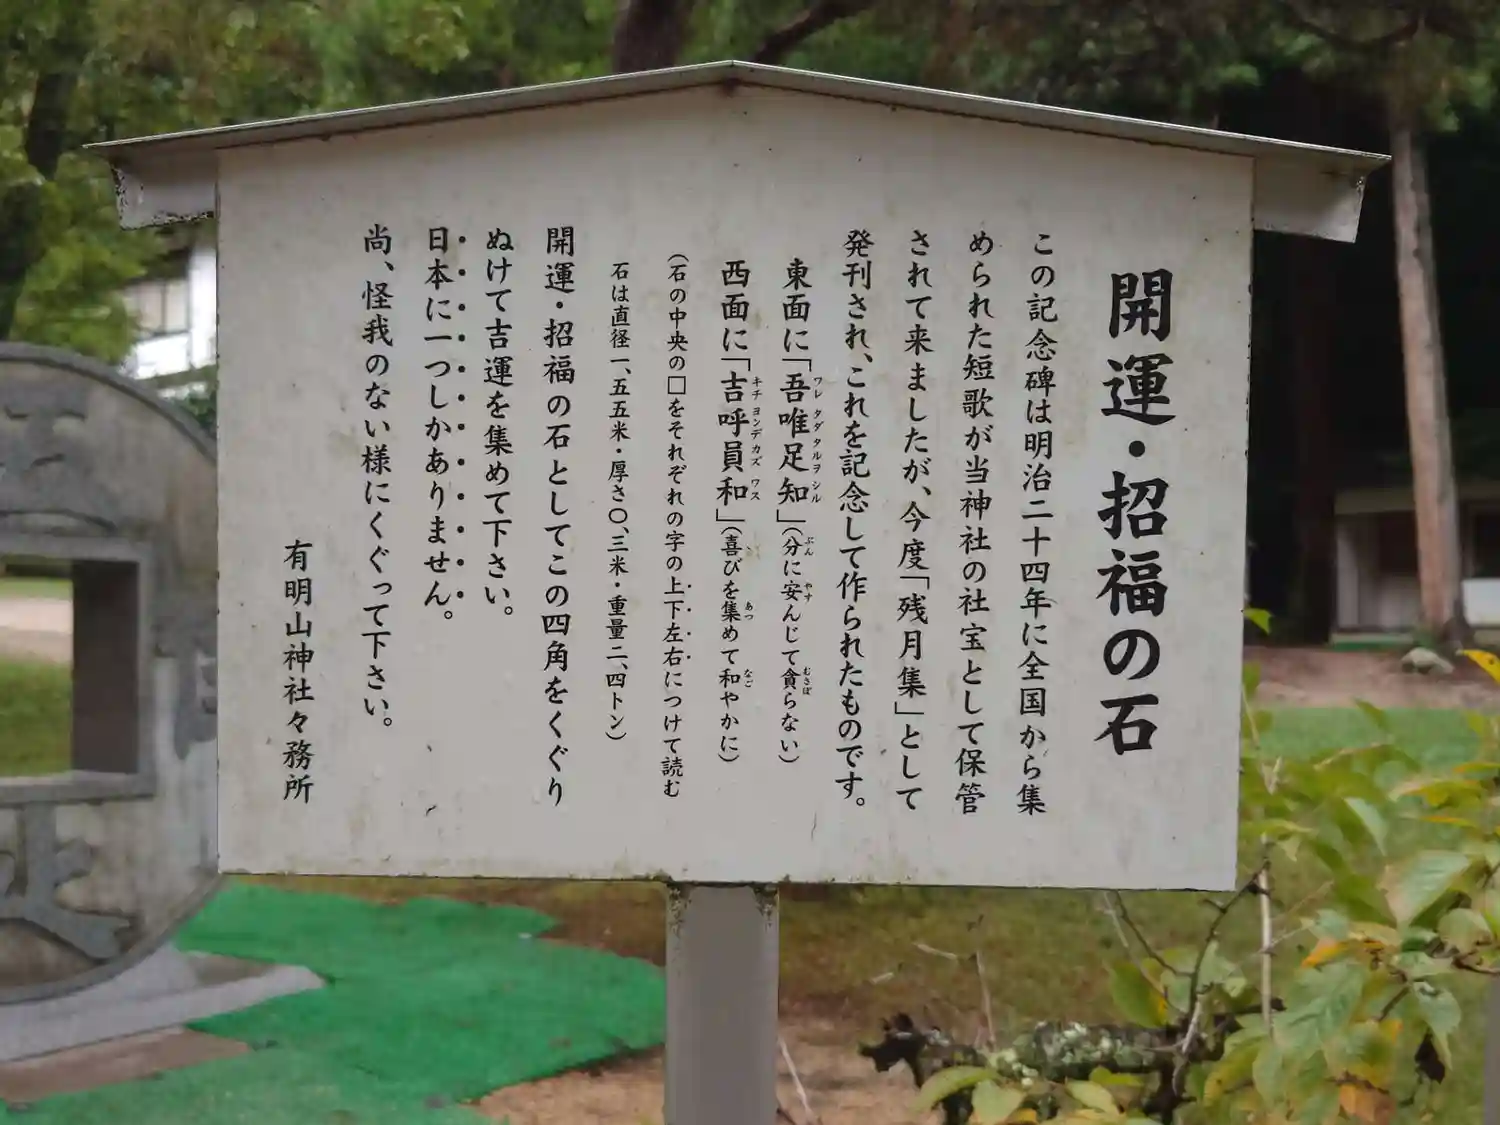 開運・招福の石
この記念碑は明治二十四年に全国から集
められた短歌が当神社の社宝として保管
されて来ましたが、今度「残月集」として
発刊され、これを記念して作られたものです。
東面に「吾唯足知」(分に安んじて貪らない)
ワレ タダ タルヲ シル ぶん やす むさぼ
西面に「吉呼員和」(喜びを集めて和やかに)
キチ ヨンデ カズ ワス あつ なご
(石の中央の□をそれぞれの字の上下左右につけて読む
石は直径一、五五米・厚さ〇、三米・重量二、四トン)
開運・招福の石としてこの四角をくぐり
ぬけて吉運を集めて下さい。
日本に一つしかありません。
尚、怪我のない様にくぐって下さい。
有明山神社々務所